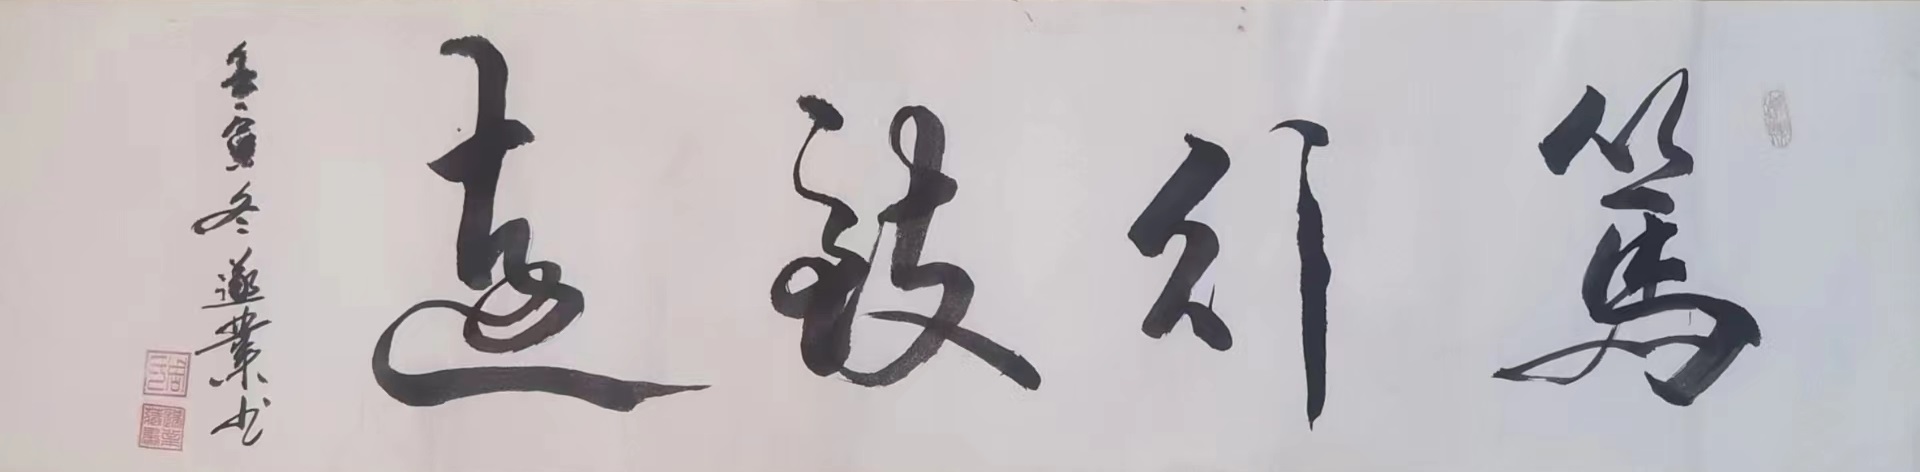 篤行致遠
壬寅冬遂業书